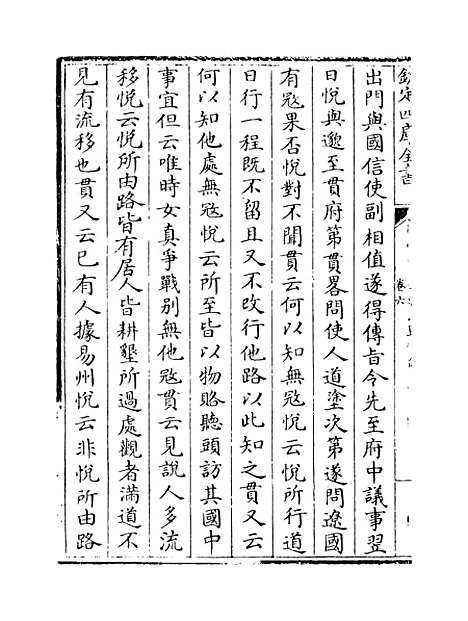 欽定四庫全書
卷六
出門與國信使副相值遂得傳旨令先至府中議事翌
日悅與邈至貫府第貫畧問使人道塗次第遂問遼國
有寇果否悅對不聞貫云何以知無寇悅云悅所行道
日行一程既不留且又不改行他路以此知之貫又云
何以知他處無寇悅云所至皆以物賂聽頭訪其國中
事宜但云唯時女真爭戰别無他寇貫云見說人多流
移悅云悅所由路皆有居人皆耕墾所過處觀者滿道不
見有流移也貫又云已有人據易州悅云非悅所由路